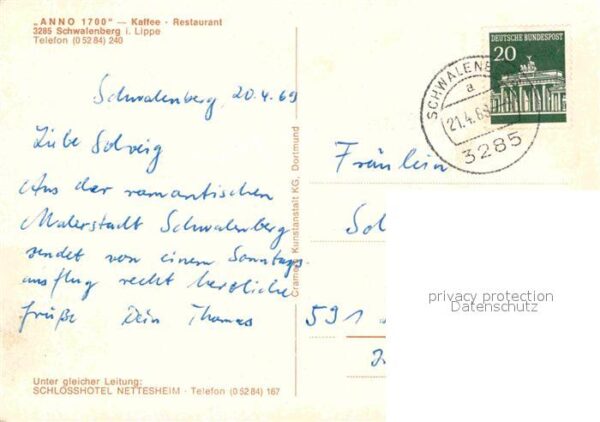 „ANNO 1700" — Kaffee · Restaurant
3285 Schwalenberg i. Lippe
Telefon (0 52 84) 240
Schwalenberg, 20.4.69
Liebe Solveig
Aus der romantischen
Malerstadt Schwalenberg
sendet von einem Sonntags-
ausflug recht herzliche
Grüße Dein Thomas
Unter gleicher Leitung:
SCHLOSSHOTEL NETTESHEIM · Telefon (0 52 84) 167
Cramers Kunstanstalt KG, Dortmund
DEUTSCHE BUNDESPOST
20
a
21.4.69
3285
Fräulein
Sol
591
privacy protection
Datenschutz